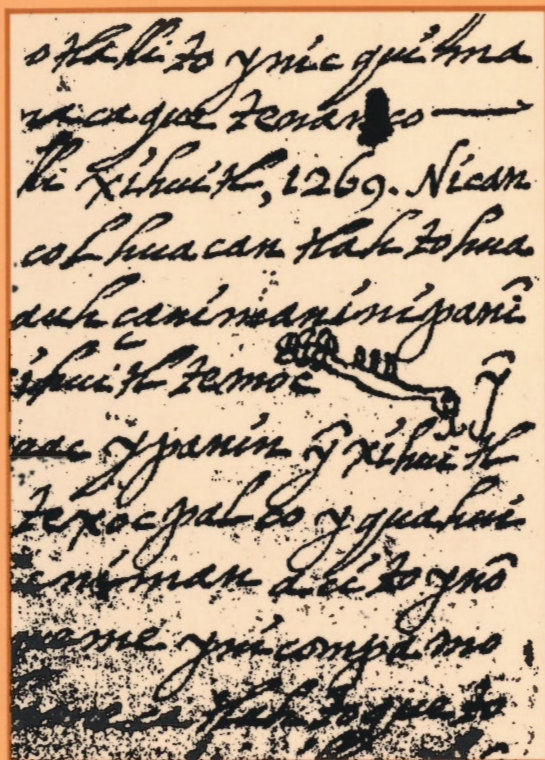 otlalli to ynic quihua
vacaque tenanco —
lli xihuitl, 1269. Nican
colhuacan tlahtohua
auh çanimanínipanî
ihuitl temoc ŷ
mac ypanin ŷ xihuitl
texocpalco yquahui
niman acito ynô
ynicompa mo
tlahtoque to